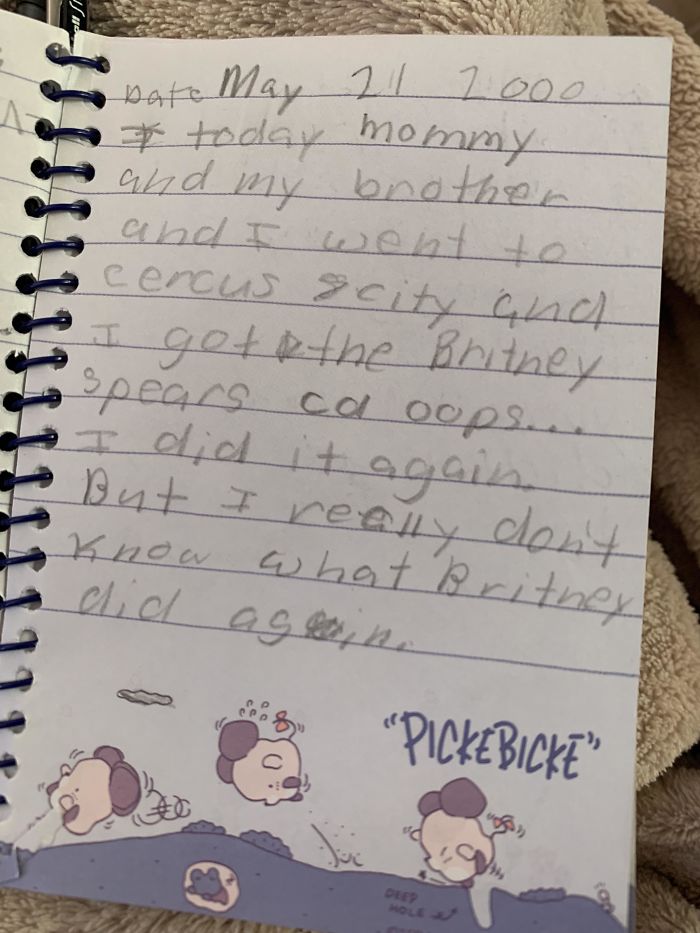 Date May 21 2000
I today mommy
and my brother
and I went to
cercus city and
I got the Britney
spears cd oops...
I did it again.
But I really don't
know what Britney
did again.
"PICKEBICKE"
DEEP
HOLE